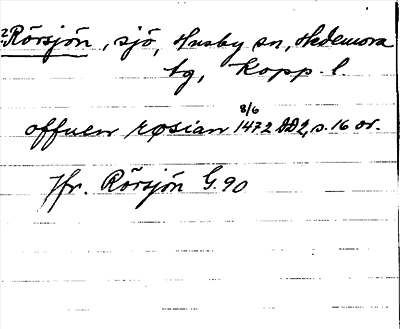 2 Rörsjön, sjö, Husby sn, Hedemora
tg, Kopp. l.
offuen røsian 8/6 1472 DD2, s. 16 or.
Jfr. Rörsjön G. 90